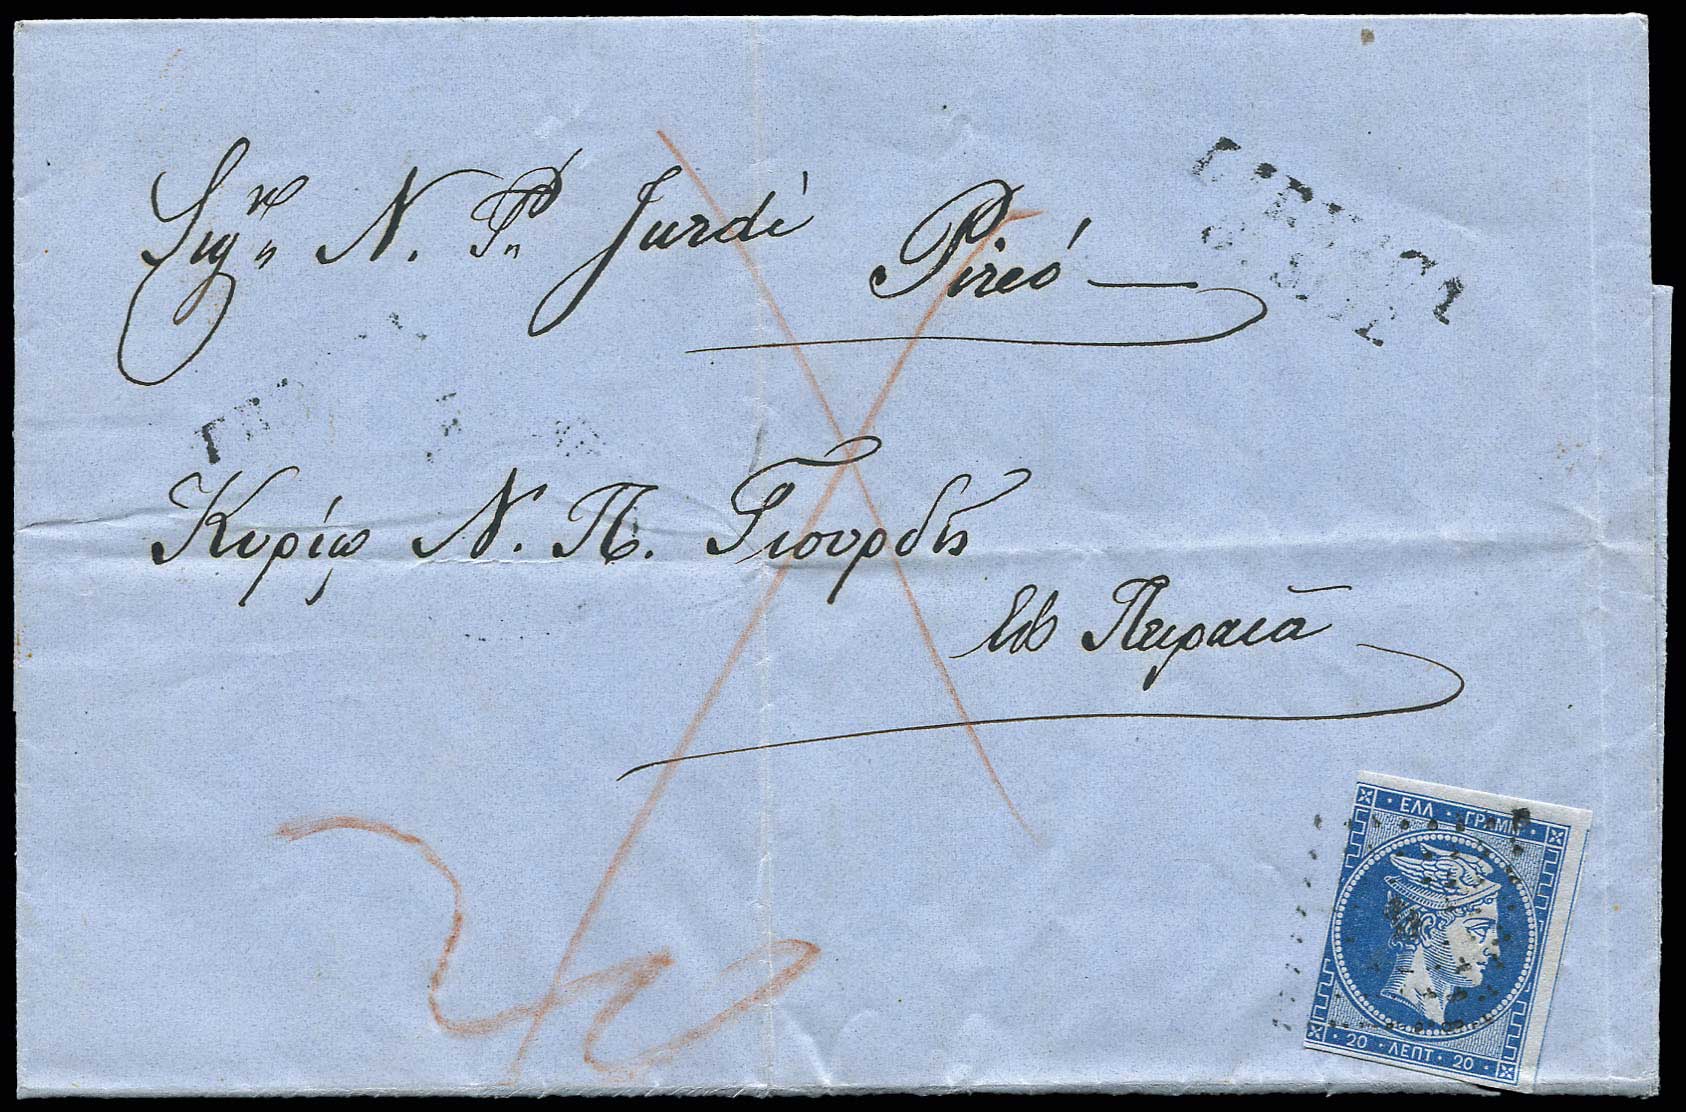 Sigre N. Pd Jurdì
Pireó
Κυρίῳ Ν. Π. Γιουρδῇ
Εἰς Πειραιᾶ
ΕΛΛ · ΓΡΑΜΜ ·
20 · ΛΕΠΤ · 20